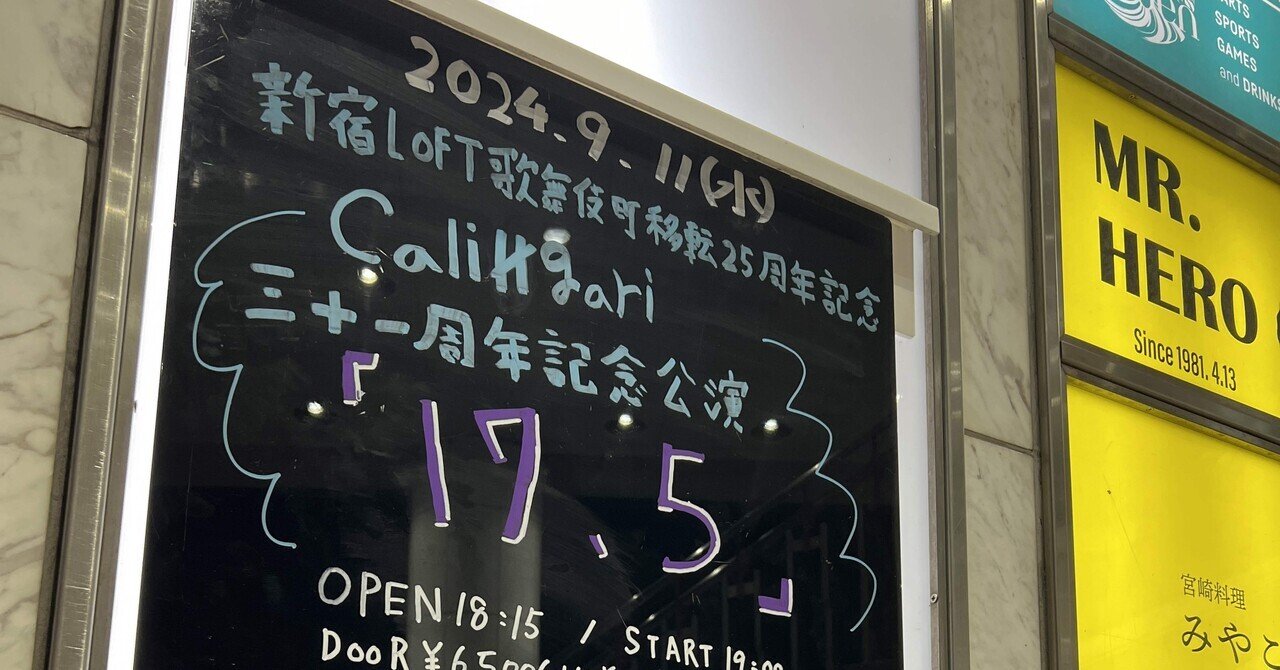 2024.9.11(水)
新宿LOFT歌舞伎町移転25周年記念
Cali≠gari
三十一周年記念公演
「17.5」
OPEN 18:15 / START 19:00
DOOR ¥6500
ARTS
SPORTS
GAMES
and DRINKS
MR.
HERO
Since 1981.4.13
宮崎料理
みやこ